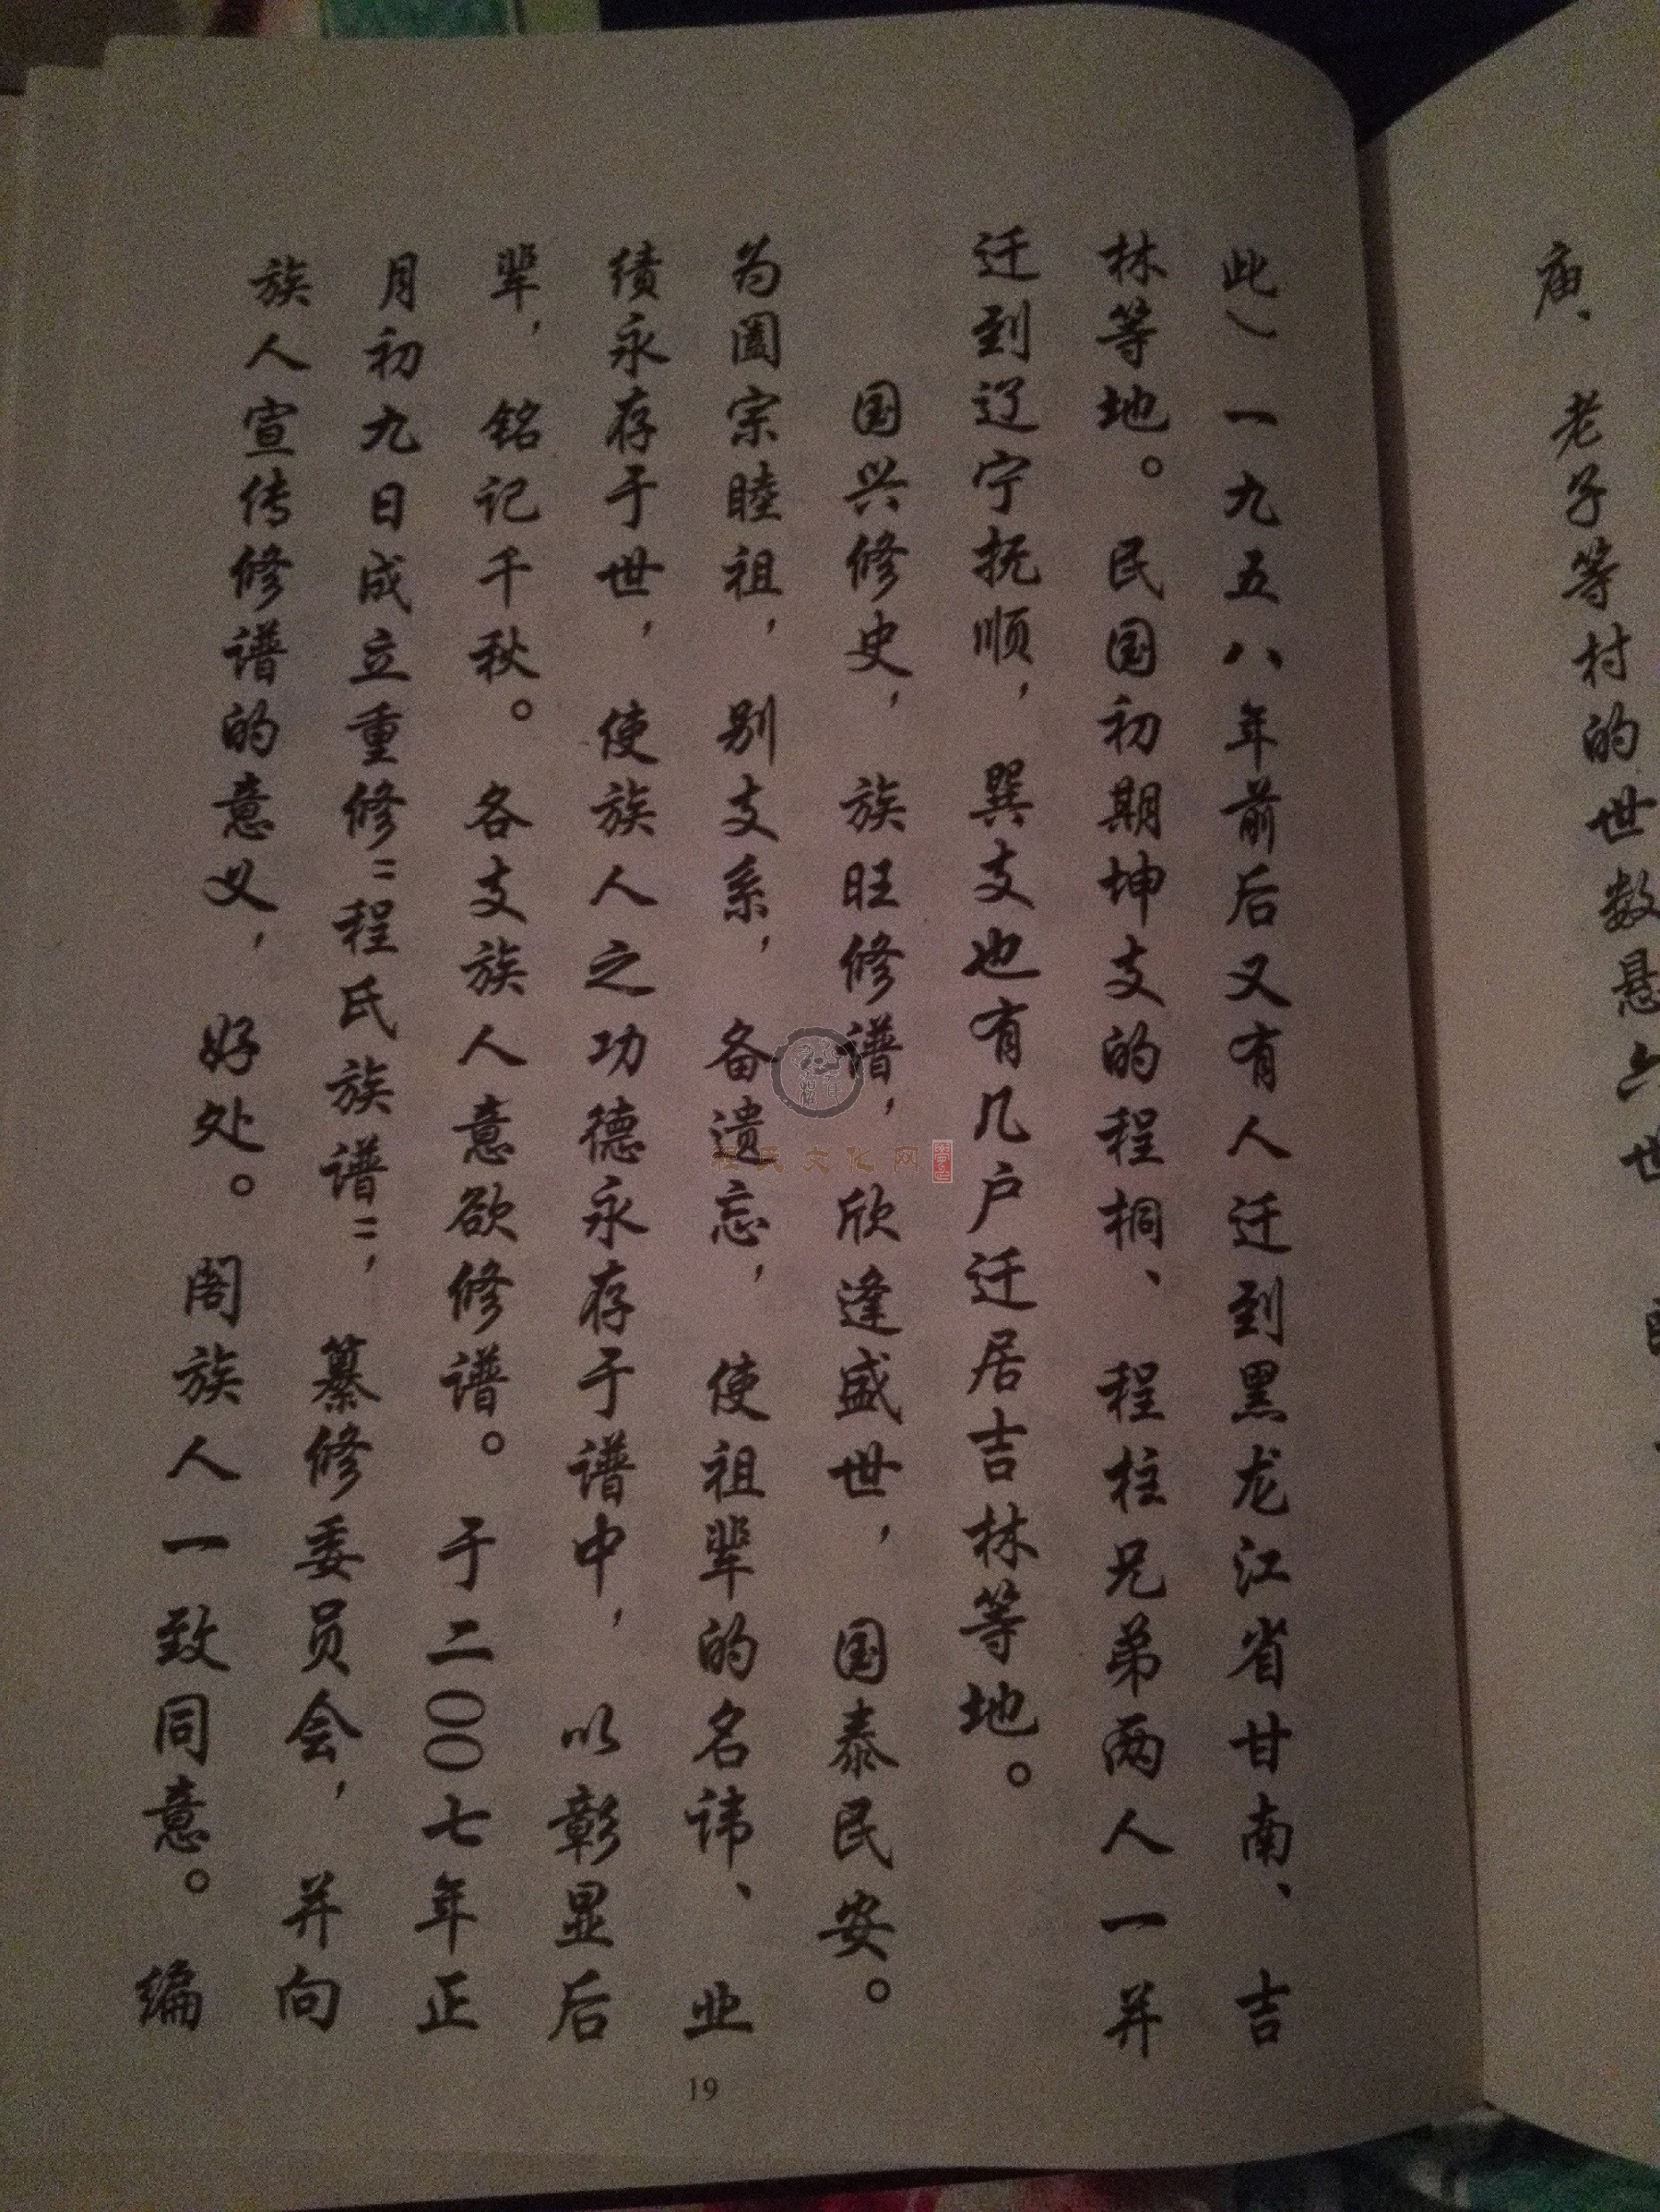 庙、老子等村的世数悬六世
此）一九五八年前后又有人迁到黑龙江省甘南、吉
林等地。民国初期坤支的程桐、程柱兄弟两人一并
迁到辽宁抚顺，巽支也有几户迁居吉林等地。
国兴修史，族旺修谱，欣逢盛世，国泰民安。
为圄宗睦祖，别支系，备遗忘，使祖辈的名讳、业
绩永存于世，使族人之功德永存于谱中，以彰显后
辈，铭记千秋。各支族人意欲修谱。于二00七年正
月初九日成立重修"程氏族谱"，纂修委员会，并向
族人宣传修谱的意义，好处。阁族人一致同意。编
程氏文化网
19